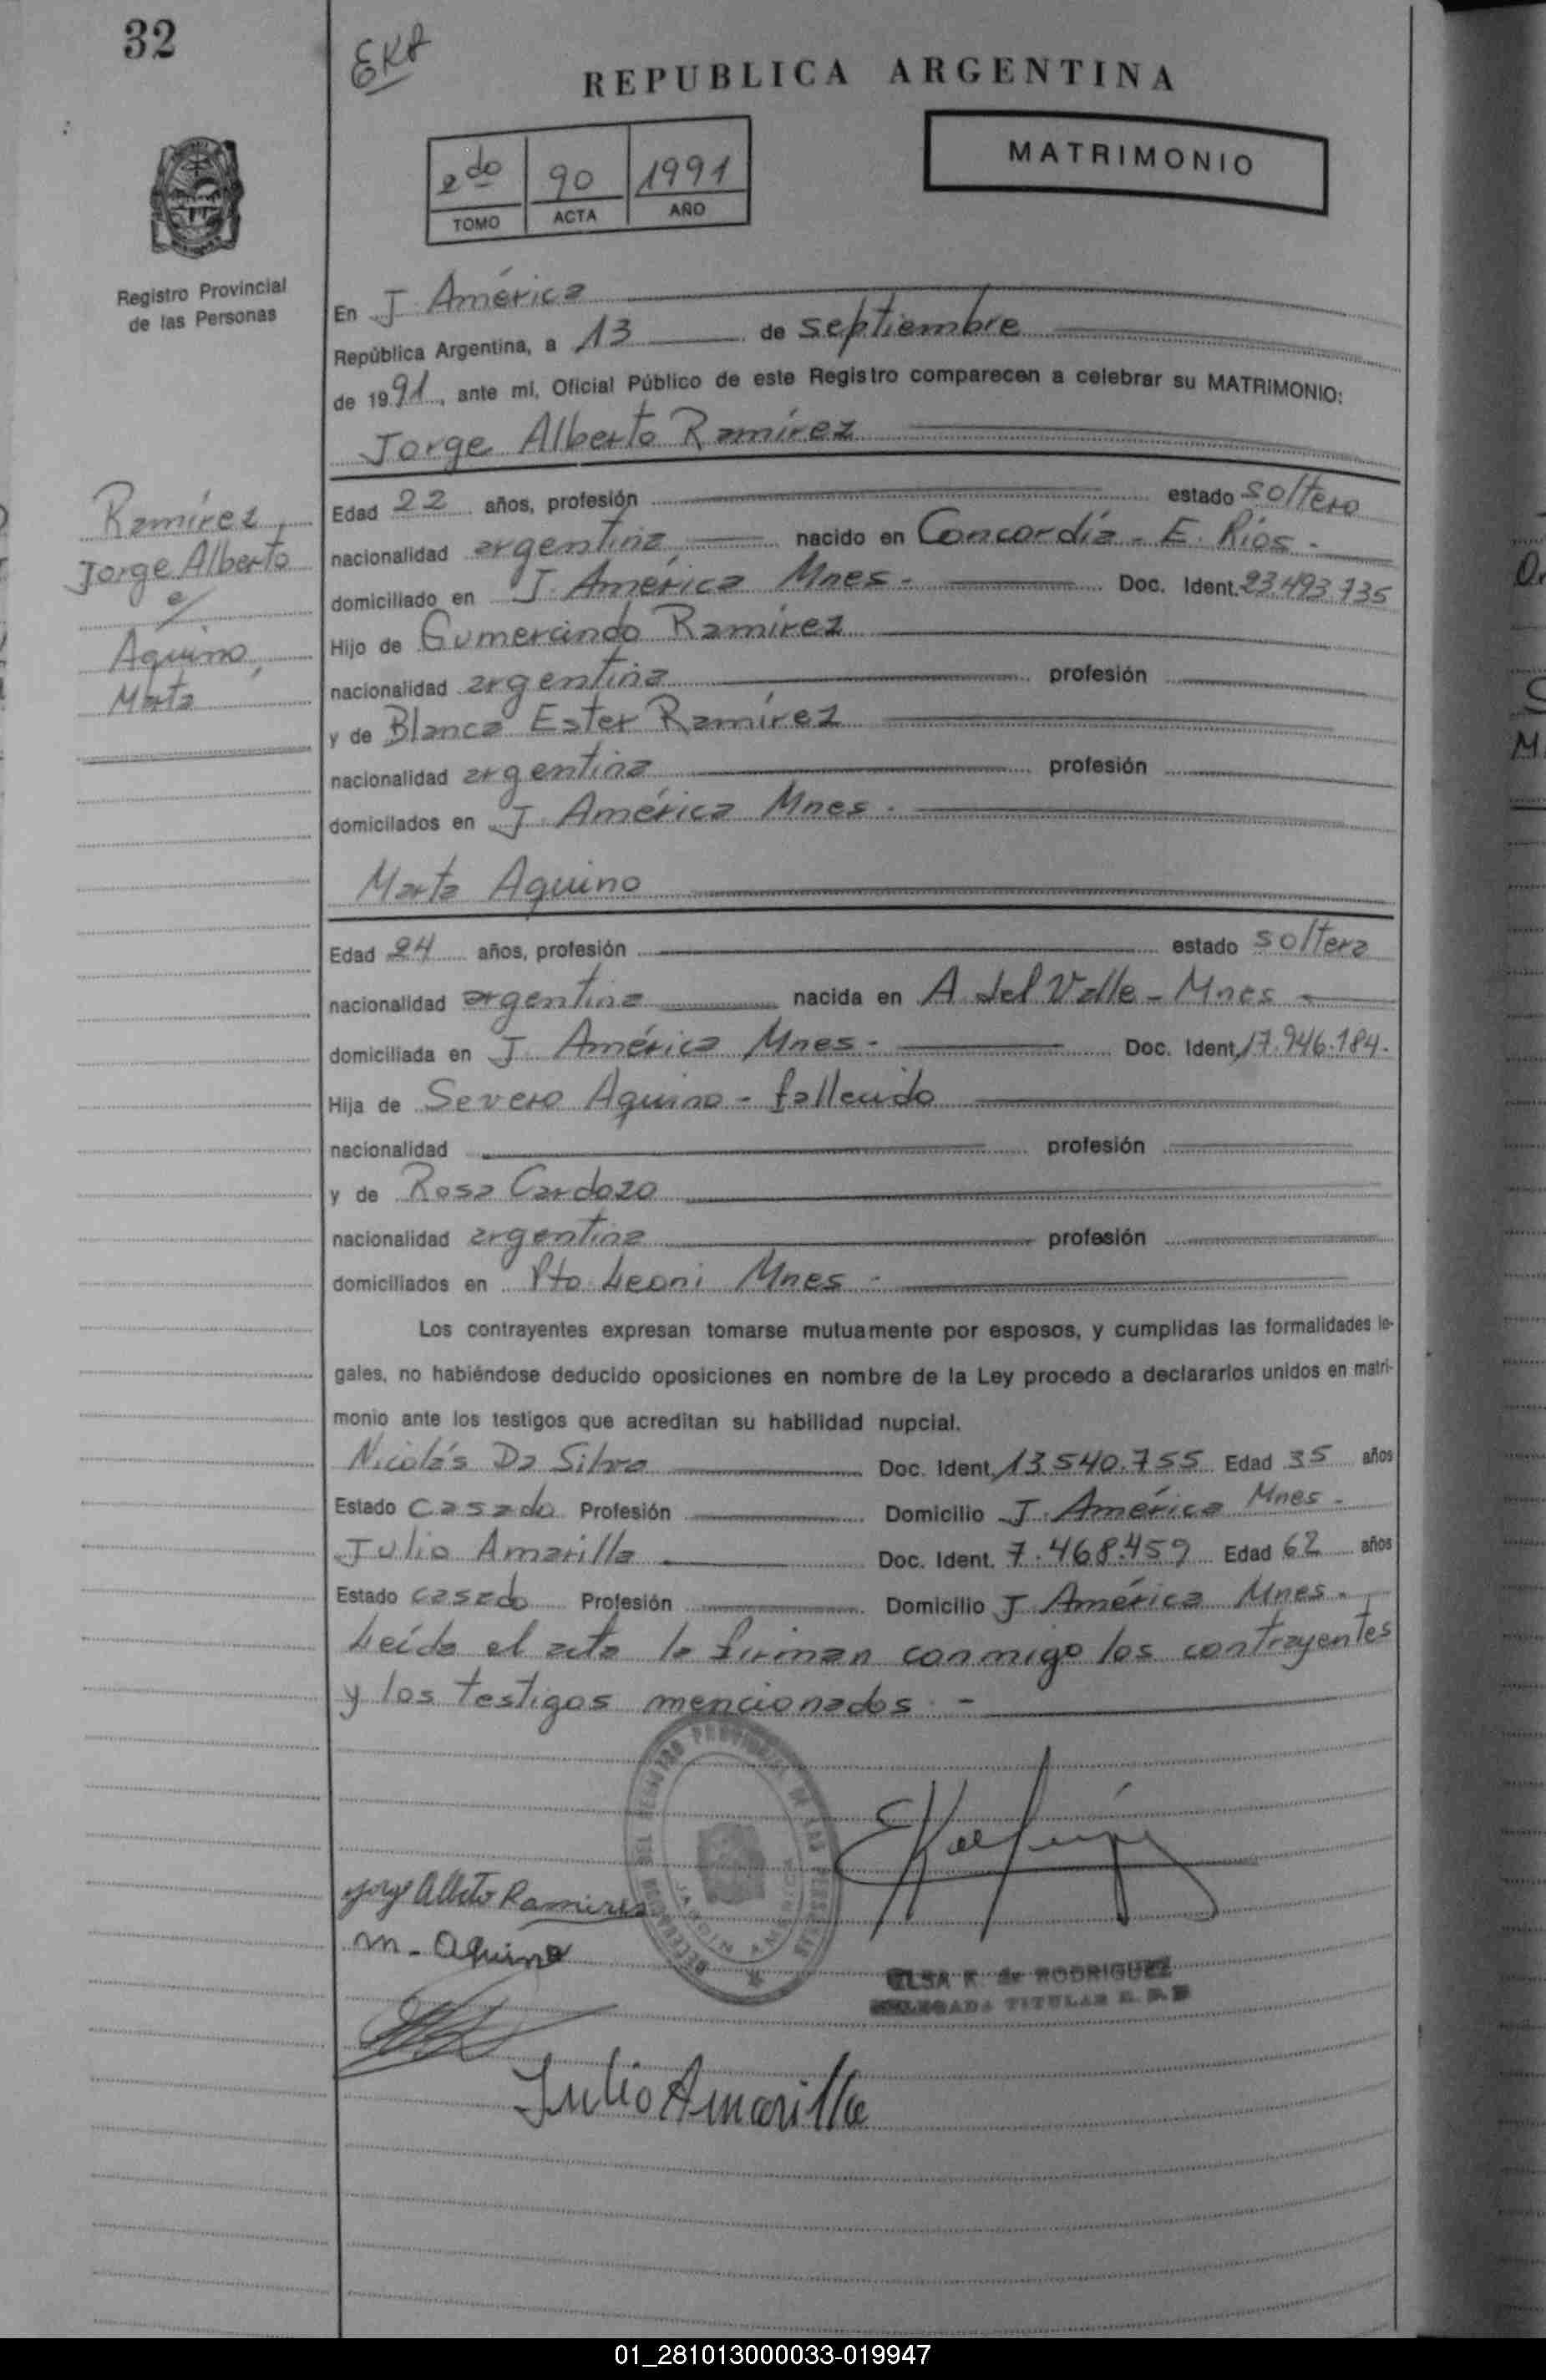 32
EKR
REPUBLICA ARGENTINA
MATRIMONIO
2do 90 1991
TOMO ACTA AÑO
Registro Provincial
de las Personas
En J. América
República Argentina, a 13 de septiembre
de 1991, ante mi, Oficial Público de este Registro comparecen a celebrar su MATRIMONIO:
Jorge Alberto Ramírez
Ramírez,
Jorge Alberto
c/
Aquino,
Marta
Edad 22 años, profesión estado soltero
nacionalidad argentina nacido en Concordia - E. Ríos.
domiciliado en J. América Mnes. Doc. Ident. 23.493.735
Hijo de Gumercindo Ramírez
nacionalidad argentina profesión
y de Blanca Ester Ramírez
nacionalidad argentina profesión
domicilados en J. América Mnes.
Marta Aquino
Edad 24 años, profesión estado soltera
nacionalidad argentina nacida en A. del Valle - Mnes
domiciliada en J. América Mnes. Doc. Ident. 17.946.184.
Hija de Severo Aquino - fallecido
nacionalidad profesión
y de Rosa Cardozo
nacionalidad argentina profesión
domiciliados en Pto. Leoni Mnes.
Los contrayentes expresan tomarse mutuamente por esposos, y cumplidas las formalidades le-
gales, no habiéndose deducido oposiciones en nombre de la Ley procedo a declararlos unidos en matri-
monio ante los testigos que acreditan su habilidad nupcial.
Nicolás Da Silva Doc. Ident. 13.540.755 Edad 35 años
Estado casado Profesión Domicilio J. América Mnes.
Julio Amarilla Doc. Ident. 7.468.459 Edad 62 años
Estado casado Profesión Domicilio J. América Mnes.
Leída el acta la firman conmigo los contrayentes
y los testigos mencionados. -
REGISTRO PROVINCIAL DE LAS PERSONAS
JARDIN AMERICA
Jorge Alberto Ramires
M. Aquino
ELSA K. de RODRIGUEZ
DELEGADA TITULAR R. P. P.
Julio Amarilla
01_281013000033-019947